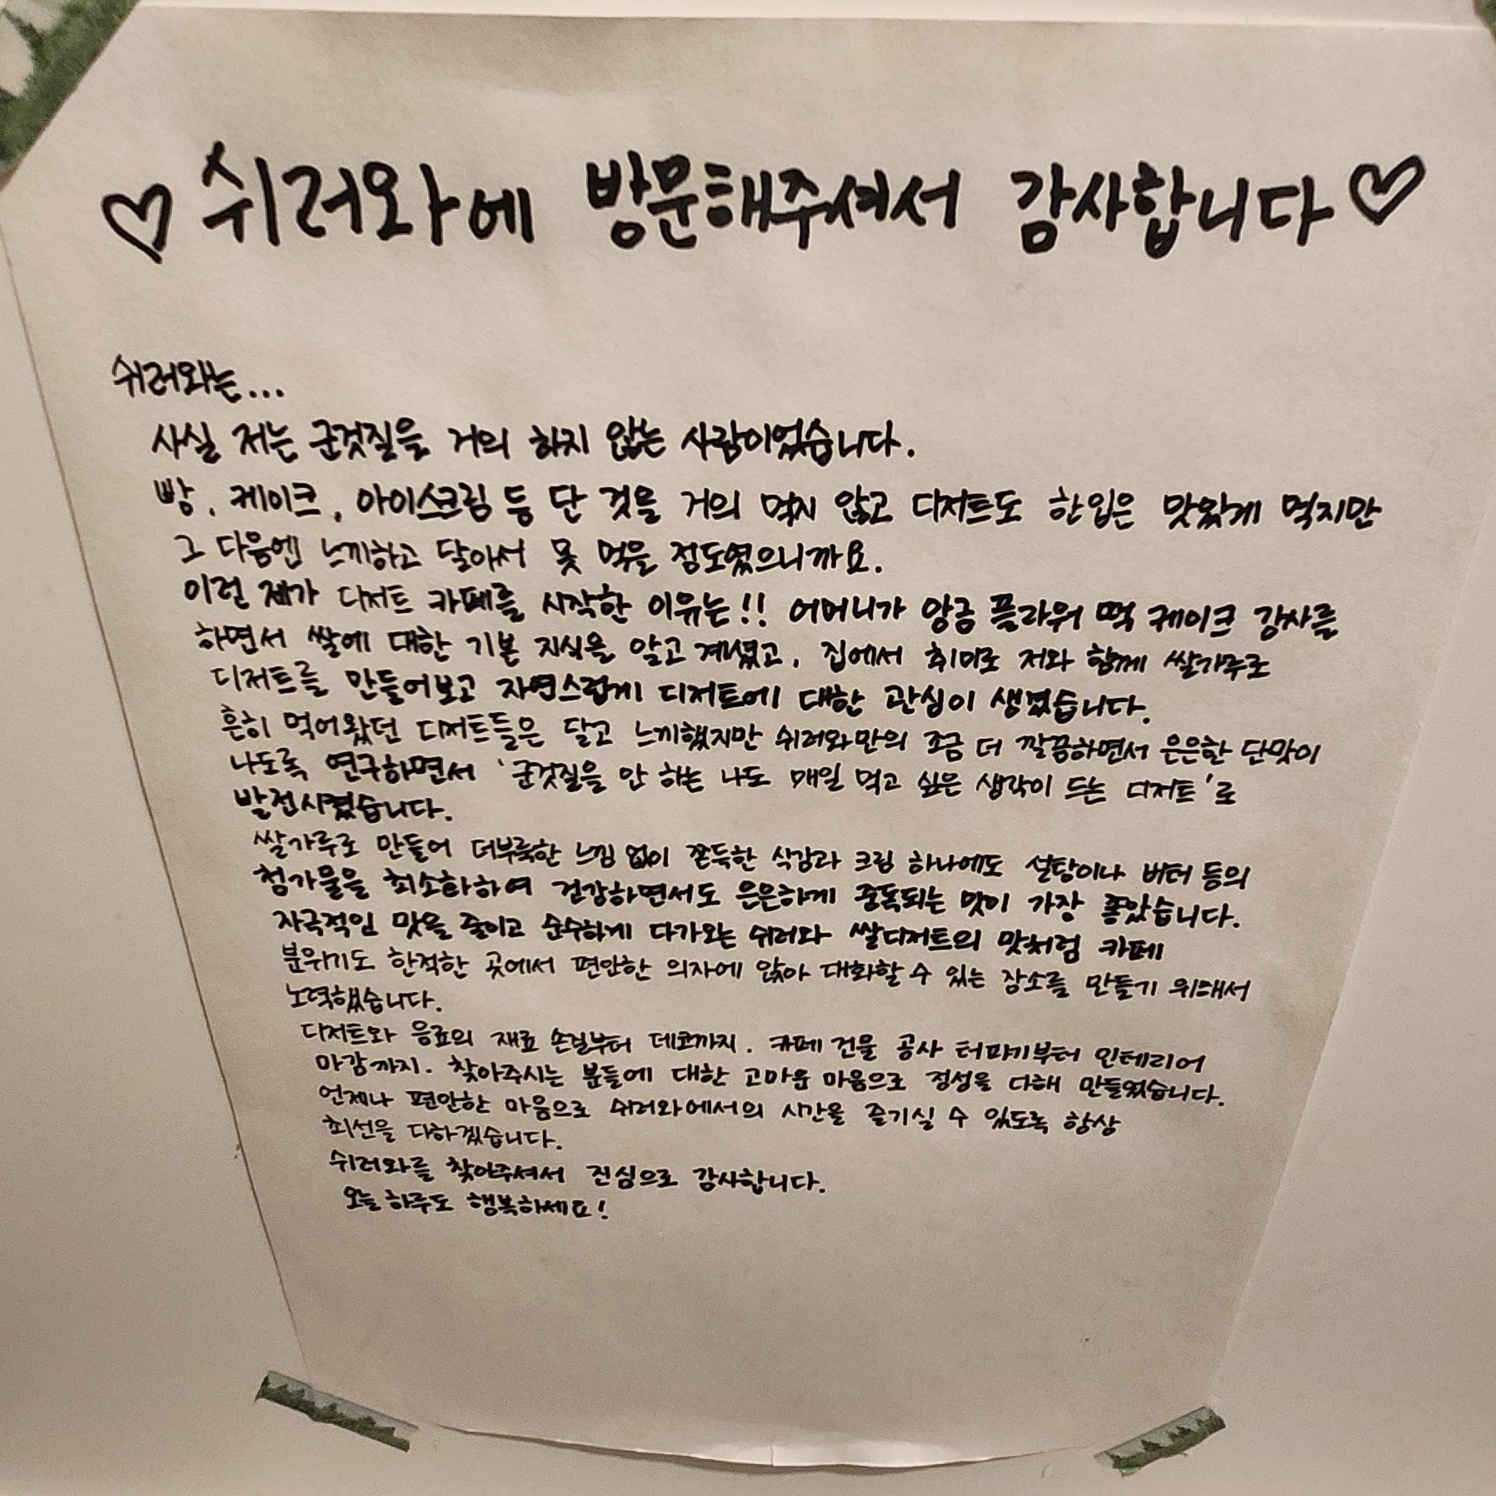 ♡ 쉬러와에 방문해주셔서 감사합니다 ♡
쉬러와는...
사실 저는 군것질을 거의 하지 않는 사람이었습니다.
빵, 케이크, 아이스크림 등 단 것을 거의 먹지 않고 디저트도 한입은 맛있게 먹지만
그 다음엔 느끼하고 달아서 못 먹을 정도였으니까요.
이런 제가 디저트 카페를 시작한 이유는!! 어머니가 앙금 플라워 떡 케이크 강사를
하면서 쌀에 대한 기본 지식을 알고 계셨고, 집에서 취미로 저와 함께 쌀가루로
디저트를 만들어보고 자연스럽게 디저트에 대한 관심이 생겼습니다.
흔히 먹어왔던 디저트들은 달고 느끼했지만 쉬러와만의 조금 더 깔끔하면서 은은한 단맛이
나도록 연구하면서 '군것질을 안 하는 나도 매일 먹고 싶은 생각이 드는 디저트'로
발전시켰습니다.
쌀가루로 만들어 더부룩한 느낌 없이 쫀득한 식감과 크림 하나에도 설탕이나 버터 등의
첨가물을 최소화하여 건강하면서도 은은하게 중독되는 맛이 가장 좋았습니다.
자극적인 맛을 줄이고 순수하게 다가오는 쉬러와 쌀디저트의 맛처럼 카페
분위기도 한적한 곳에서 편안한 의자에 앉아 대화할 수 있는 장소를 만들기 위해서
노력했습니다.
디저트와 음료의 재료 손질부터 데코까지, 카페 건물 공사 터파기부터 인테리어
마감까지, 찾아주시는 분들에 대한 고마운 마음으로 정성을 다해 만들었습니다.
언제나 편안한 마음으로 쉬러와에서의 시간을 즐기실 수 있도록 항상
최선을 다하겠습니다.
쉬러와를 찾아주셔서 진심으로 감사합니다.
오늘 하루도 행복하세요!